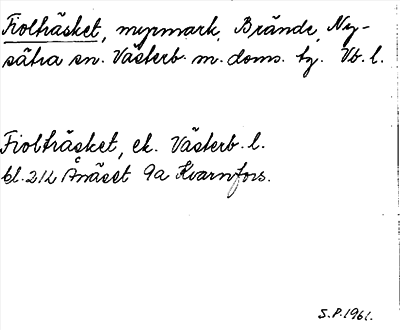 Fiolträsket, myrmark, Brände, Ny-
sätra sn. Västerb. m. doms. tg. Vb. l.
Fiolträsket, ek. Västerb. l.
bl. 212 Ånäset 9a Kvarnfors.
S.P. 1961.